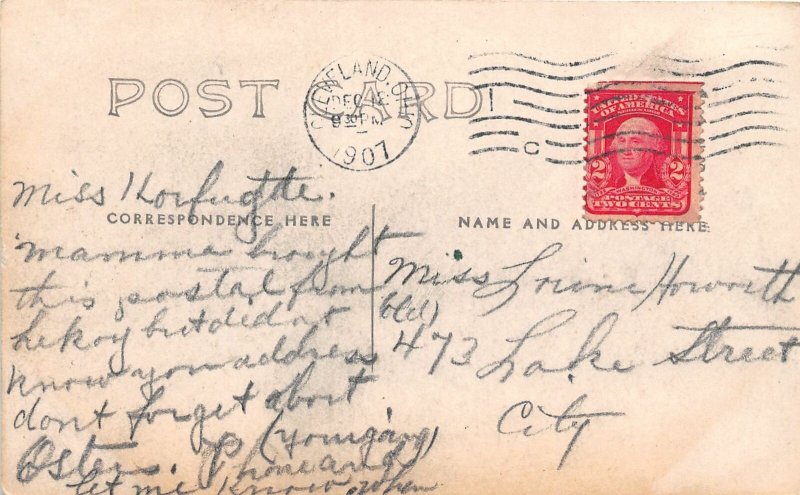 POST CARD
CLEVELAND, OHIO
DEC
930 PM
1907
C
UNITED STATES
OF AMERICA
WASHINGTON
2 2
POSTAGE
TWO CENTS
CORRESPONDENCE HERE
NAME AND ADDRESS HERE
Miss
mamma brought
this postal from
but did not
know your address
dont forget about
(
Phone and
let me know when
Miss Howorth
473 Lake Street
City